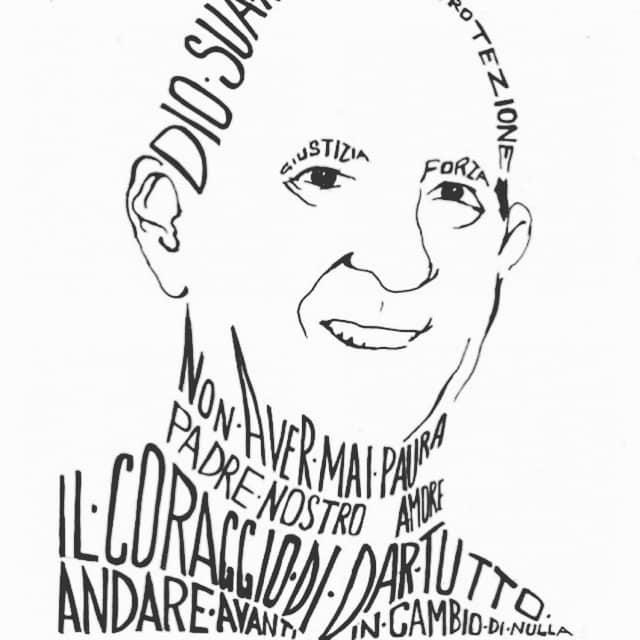 DIO·SUA
ROTEZIONE
GIUSTIZIA
FORZA
NON·AVER·MAI·PAURA
PADRE·NOSTRO
AMORE
IL·CORAGGIO·DI·DAR·TUTTO.
ANDARE·AVANTI
IN·CAMBIO·DI·NULLA